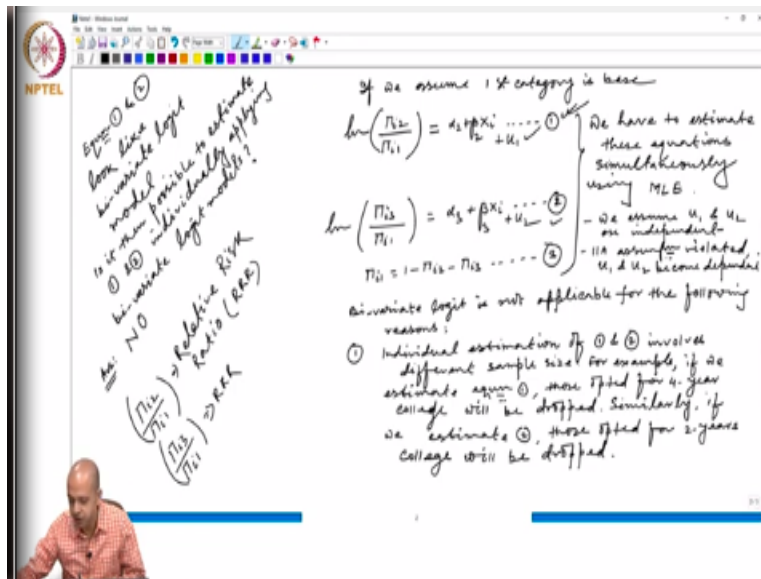 NPTEL
Equn ① & ②
look like
bi-variate logit
model
Is it then possible to estimate
① & ② individually applying
bi-variate logit models?
Ans: NO
(Πi2/Πi1) => Relative Risk
Ratio (RRR)
(Πi3/Πi1) => RRR
If we assume 1st category is base
ln(Πi2/Πi1) = α2 + β2 Xi + u1 ..... ①
ln(Πi3/Πi1) = α3 + β3 Xi + u2 ..... ②
Πi1 = 1 - Πi2 - Πi3 ..... ③
We have to estimate
these equations
simultaneously
using MLE.
- We assume u1 & u2
are independent
- IIA assumn violated,
u1 & u2 become dependent
Bi-variate logit is not applicable for the following
reasons:
① Individual estimation of ① & ② involves
different sample size. For example, if we
estimate equn ①, those opted for 4-year
college will be dropped. Similarly, if
we estimate ②, those opted for 2-years
college will be dropped.